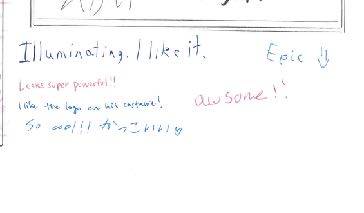 Illuminating. I like it.
Epic
Looks super powerful!!
awsome!!
I like the logo on his costume!
So cool!!! かっこいい!